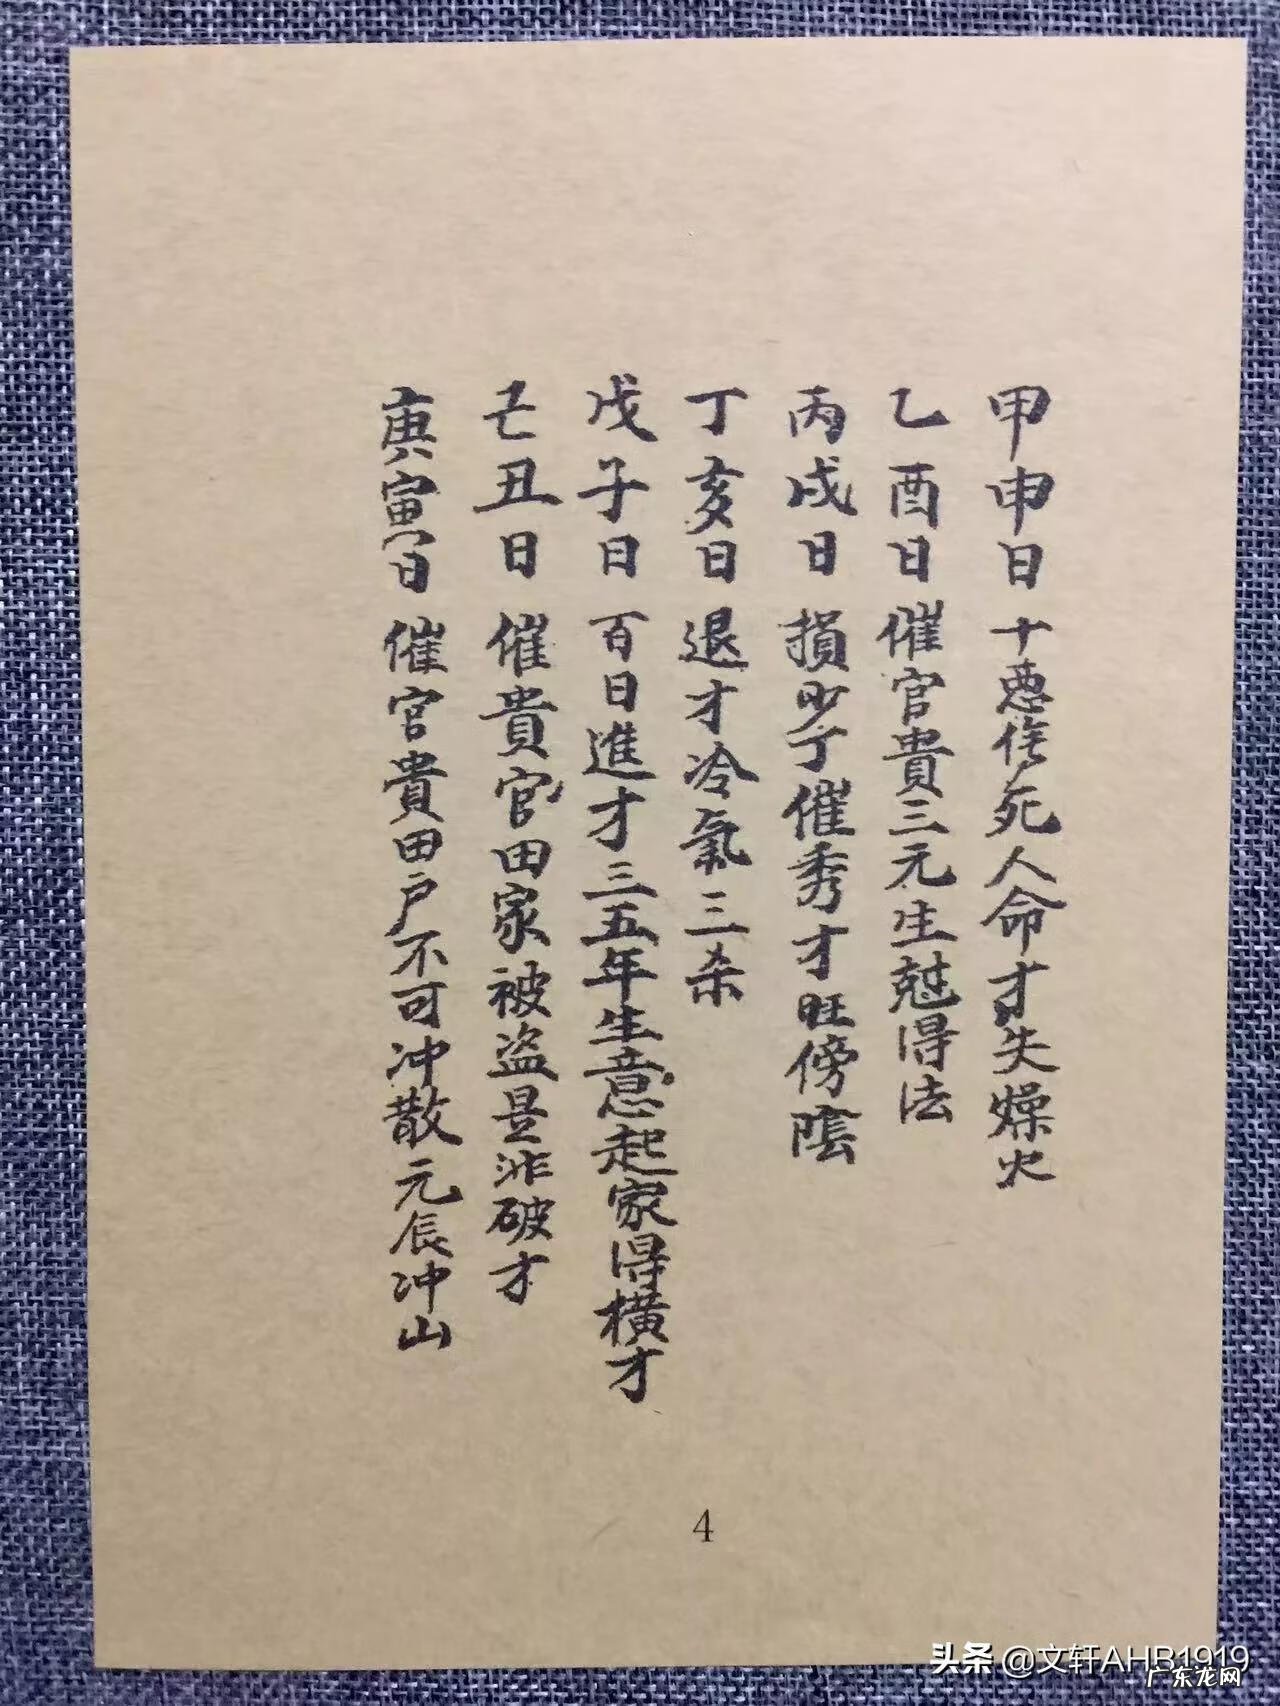 甲申日 十惡作死人命才失燥火
乙酉日 催官貴三元生尅得法
丙戌日 損少丁催秀才旺傍陰
丁亥日 退才冷氣三杀
戊子日 百日進才三五年生意起家得横才
己丑日 催貴官田家被盗是非破才
庚寅日 催官貴田户不可冲散元辰冲山
4
头条 @文轩AHB1919
广东龙网